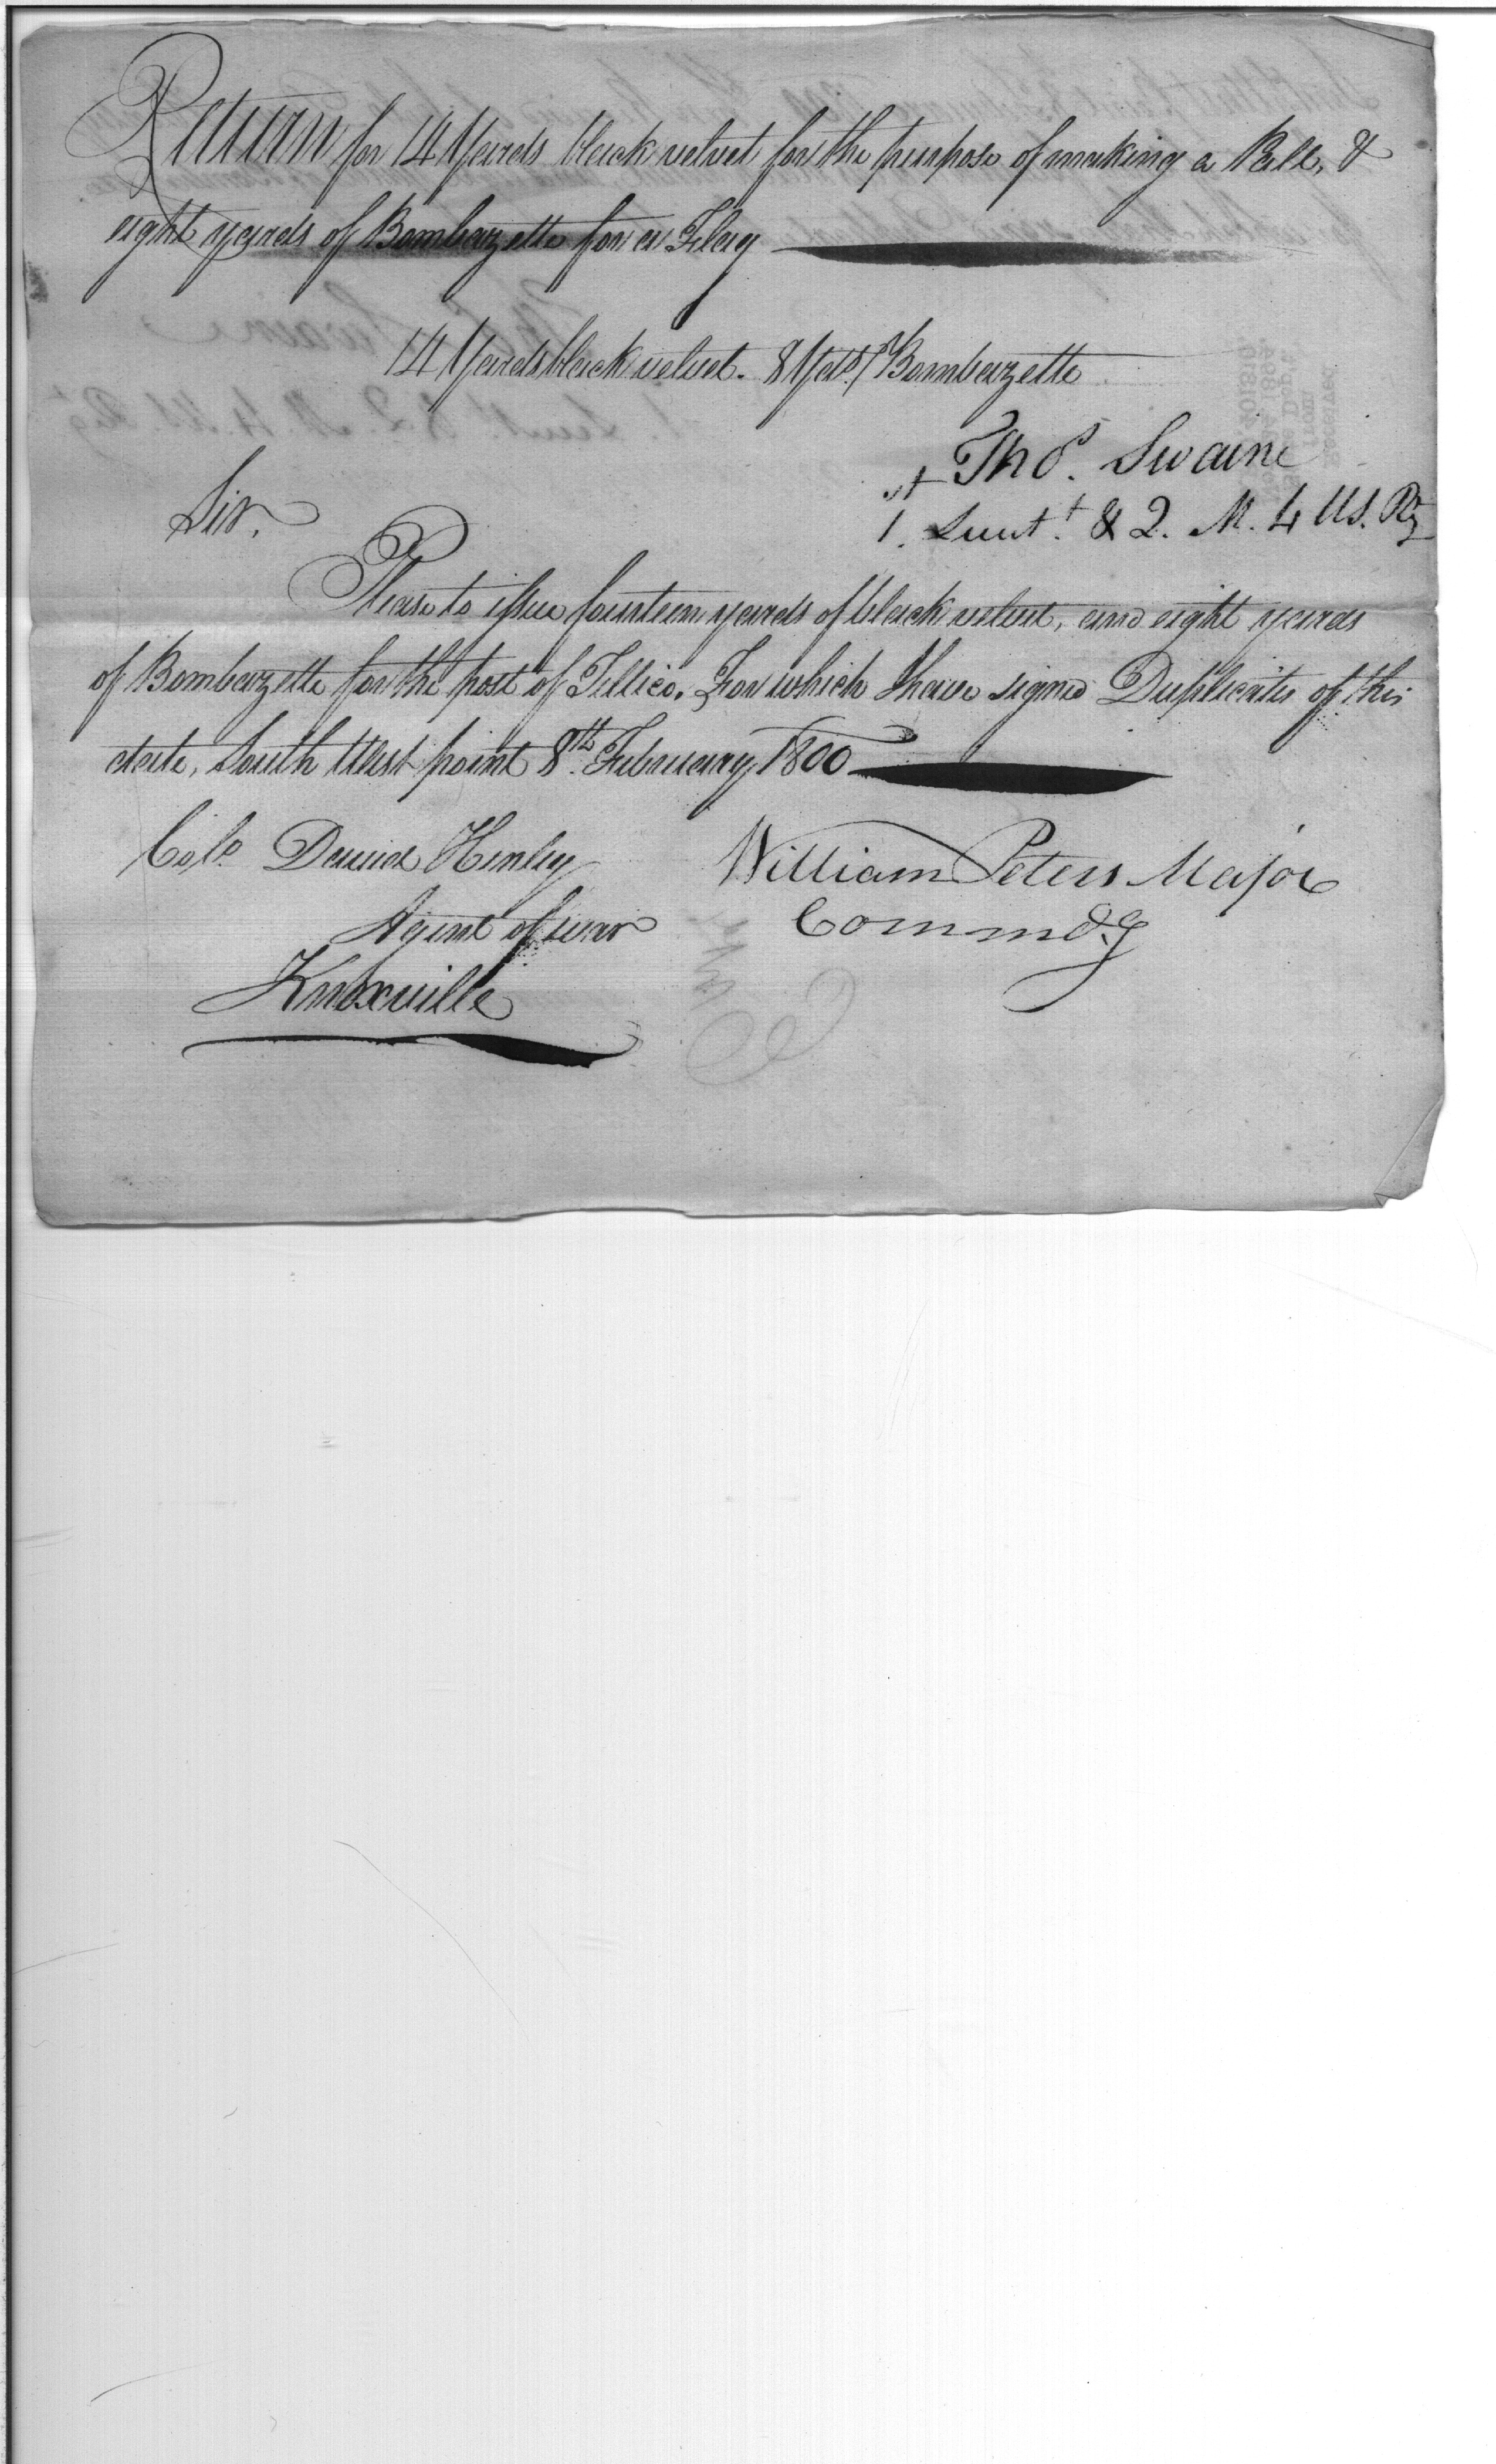 Return for 14 Yards black velvet for the purpose of making a Pall, &
eight yards of Bombazette for a Flag
14 Yards black velvet. 8 Yds. Bombazette
Thos. Swaine
1st. Lieut. & Q. M. 4 US. Rg
Sir,
Please to issue fourteen yards of black velvet, and eight yards
of Bombazette for the post of Tellico. For which I have signed Duplicates of this
date, South West point 8th. February 1800
Colo. David Henley
William Peters Major
Agent of war
Commdg
Knoxville